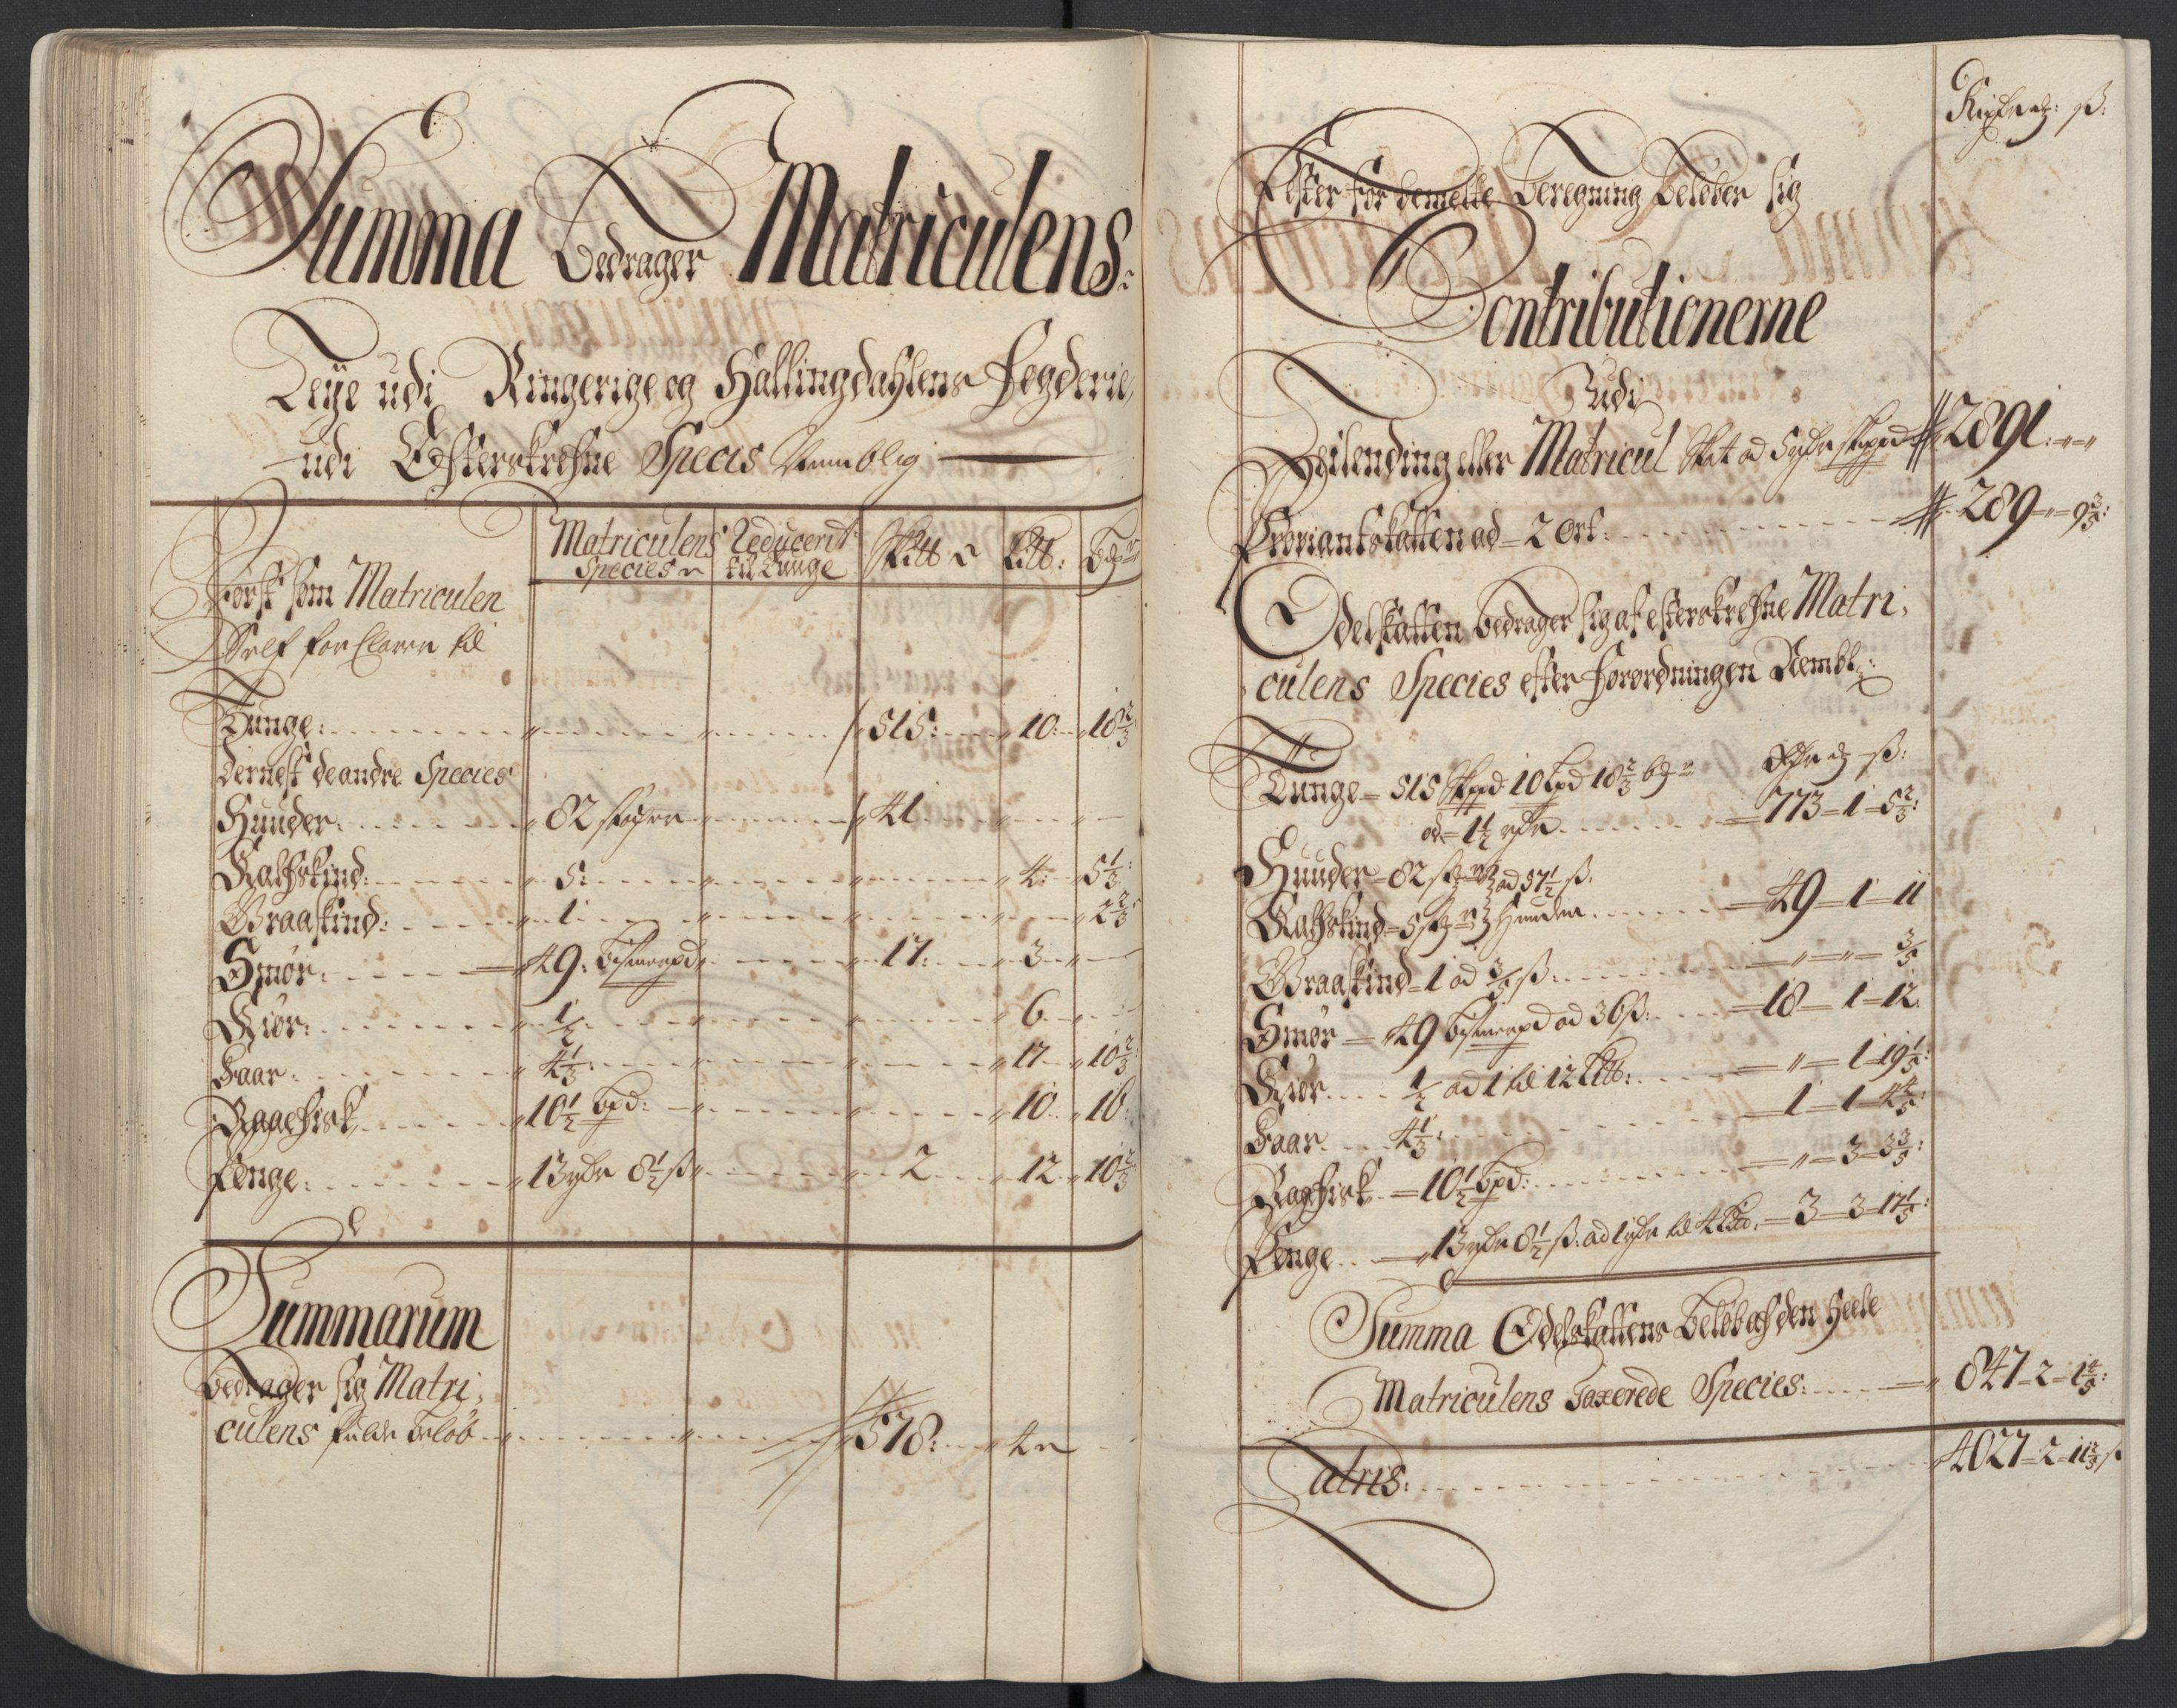 Summa Bedrager Matriculens
Leye udi Ringerige og Hallingdahlens Fogderie,
udi Efterskrefne Specis Nemblig
Matriculens Species Reducerit til Tunge Sk℔ L℔: Bpd
Først som Matriculen
Self forclarer til
Tunge: 515: 10: 18 2/3
Dernest de andre Species
Huuder. 82 41
Kalfskind: 5: 4: 5 1/3:
Graaskind: 1 2 2/3
Smør: 49: Bismerpd 17: 3
Kiør: 1/2 6
Faar. 4 1/3 17 10 2/3
Raaefisk 10 1/2 bpd: 10 16
Penge: 13 rdr 8 1/2 ß 2 12 10 2/3
Summarum
Bedrager sig Matri,
culens fulde beløb 578: 4
ß:
Efter før bemelte Beregning Beløber sig
Contributionerne
Udi
Leilending eller Matricul Skat ad 5 rdr skippd 2891:
Proviantskatten ad 2 ort: 289 9 3/5:
Odelskatten bedrager sig af efterskrefne Matri,
culens Species efter Forordningen Nembl:
Rdr ß:
Tunge 515 Skpd 10 Lpd 18 2/3
ad 1 1/2 rdr 773 1 5 2/5:
Huuder 82 ad 57 1/2 ß:
Kalfskind 5 Huuder 49 1 11
Graaskind 1 ad 3/5 ß: 3/5
Smør 49 Bismerpd ad 36 ß: 18 1 12
Kiør 1/2 ad 1 til 12 L℔: 1 19 1/5:
Faar 4 1/3: 1 1 4 4/5:
Raafisk 10 1/2 bpd: 3 3 3/5:
Penge 13 rdr 8 1/2 ß: ad 1 rdr til 4 3 3 17 1/5:
Summa Odelskattens Beløb af den heele
Matriculens Taxerede Species: 847 2 1 4/5:
Latris: 4027 2 11 2/5 ß